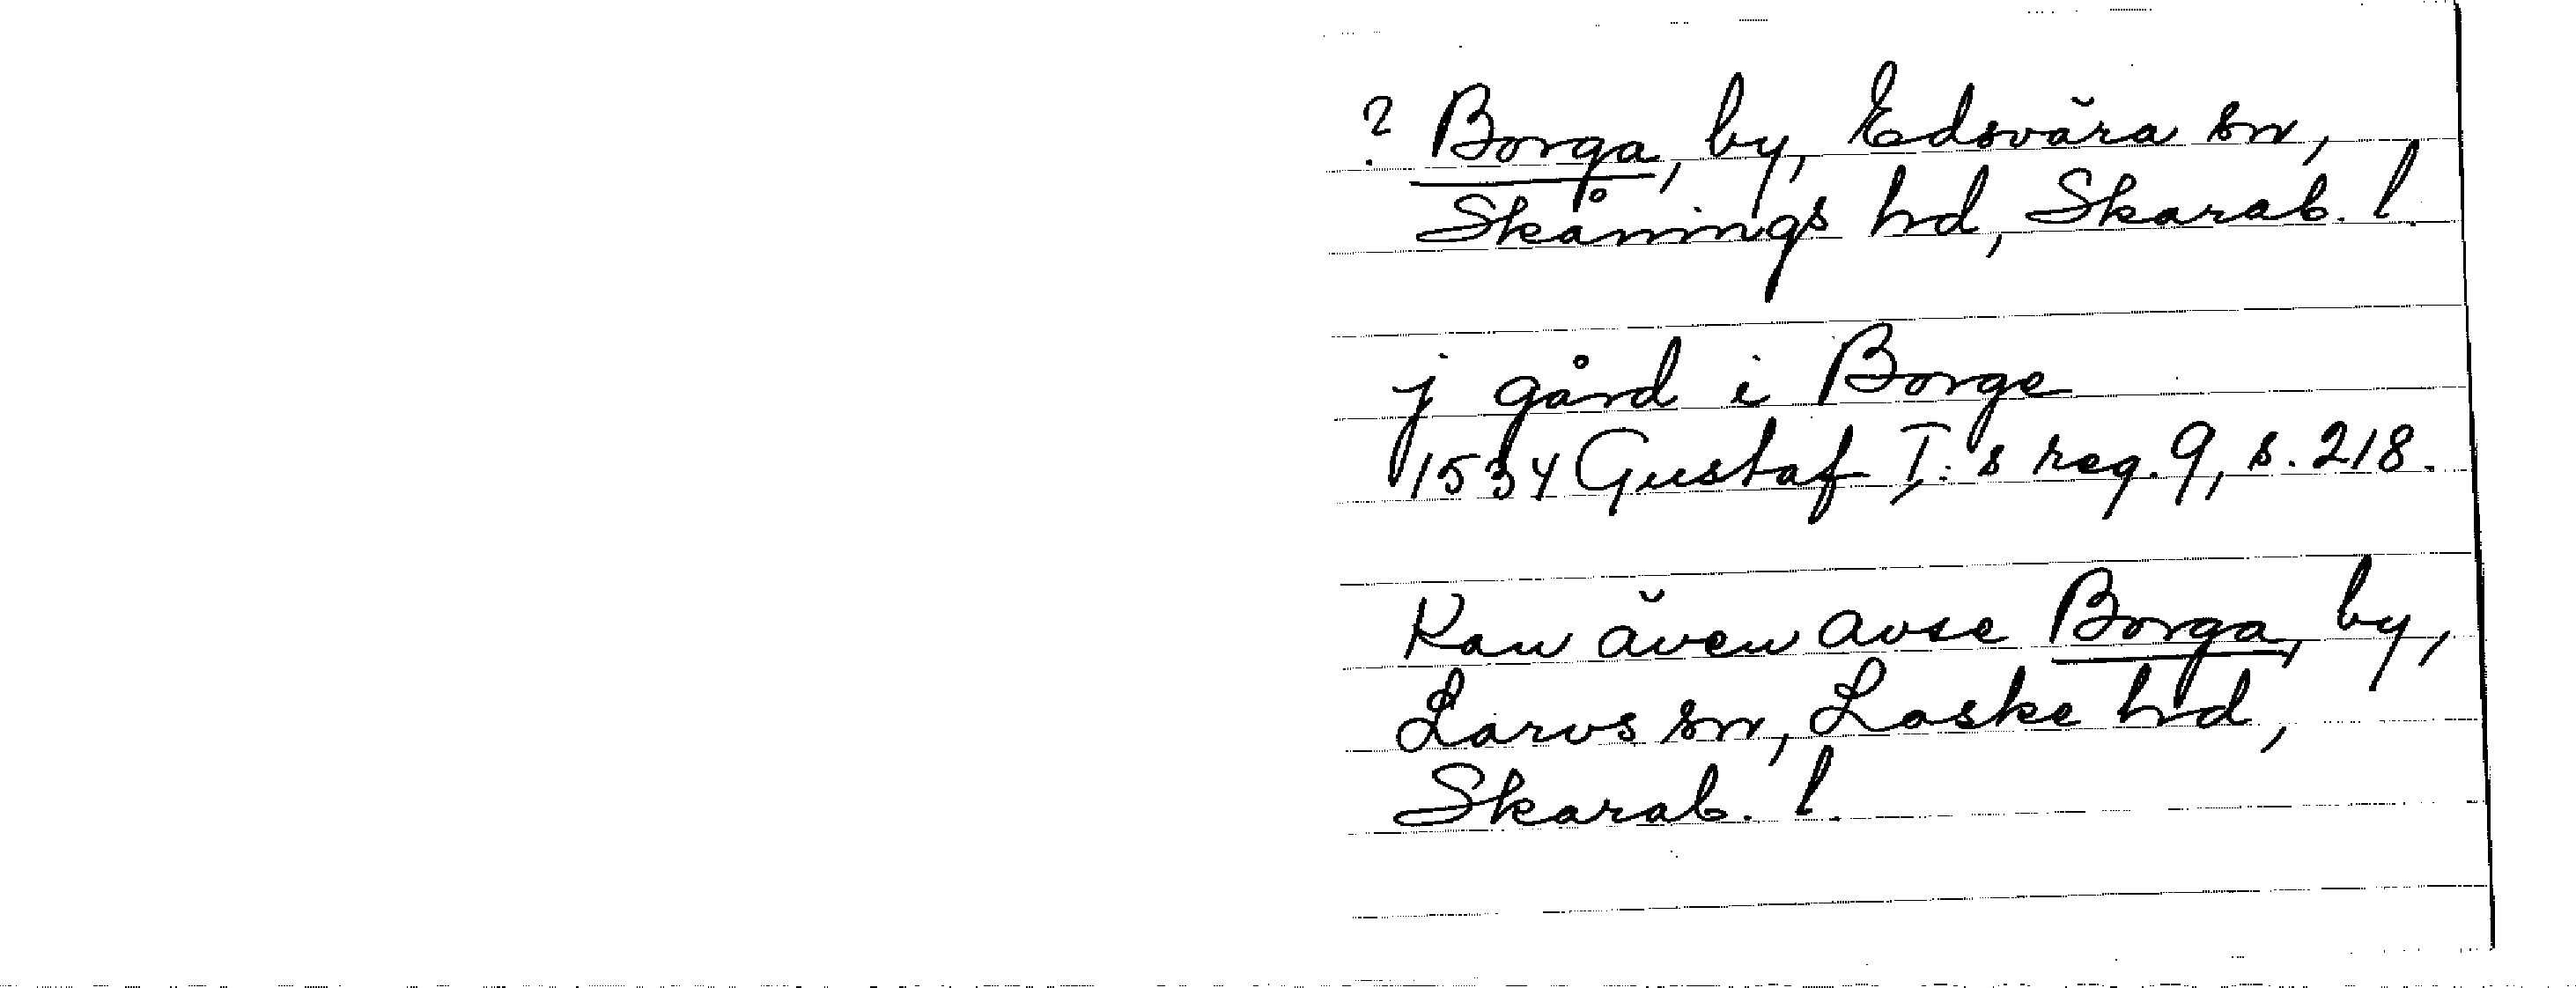 ? Borga, by, Edsvära sn,
Skånings hd, Skarab. l.
j gård i Borge
1534 Gustaf I:s reg. 9, s. 218.
Kan även avse Borga, by,
Larvs sn, Laske hd,
Skarab. l.